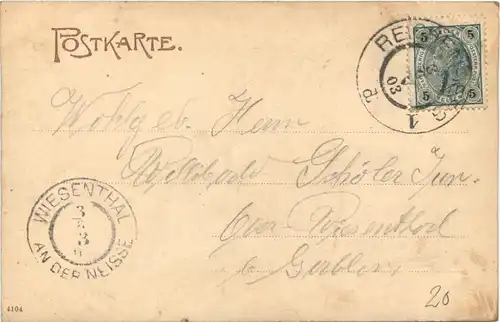 POSTKARTE.
5 5
5 5
REICHENBERG
03
1
Wohlgeb. Herrn
Schöler Jun.
Ober Wiesenthal
b. Gablonz
WIESENTHAL
3
3
AN DER NEISSE
4104
20